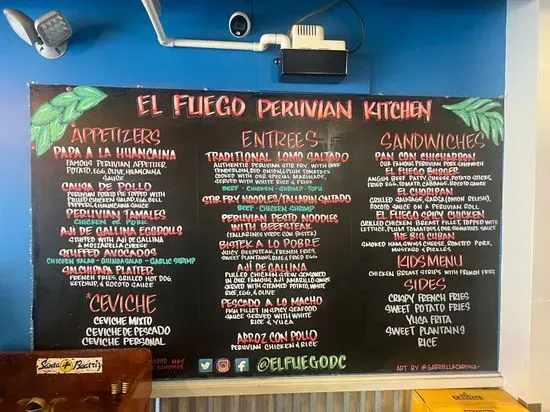 EL FUEGO PERUVIAN KITCHEN
APPETIZERS
PAPA A LA HUANCAINA
FAMOUS PERUVIAN APPETIZER
POTATO, EGG, OLIVE, HUANCAINA
SAUCE
CAUSA DE POLLO
PERUVIAN POTATO PIE TOPPED WITH
PULLED CHICKEN SALAD, EGG, BELL
PEPPERS, & HUANCAINA SAUCE
PERUVIAN TAMALES
CHICKEN OR PORK
AJI DE GALLINA EGGROLLS
STUFFED WITH AJI DE GALLINA
& MOZZARELLA CHEESE
STUFFED AVOCADOS
CHICKEN SALAD - QUINOA SALAD - GARLIC SHRIMP
SALCHIPAPA PLATTER
FRENCH FRIES, GRILLED HOT DOG,
KETCHUP, & ROCOTO SAUCE
*CEVICHE
CEVICHE MIXTO
CEVICHE DE PESCADO
CEVICHE PERSONAL
FOOD MAY
ENTREES
TRADITIONAL LOMO SALTADO
AUTHENTIC PERUVIAN STIR FRY WITH BEEF
TENDERLOIN, RED ONION, PLUM TOMATOES
COOKED WITH OUR SPECIAL MARINADE,
SERVED WITH WHITE RICE & FRIES
BEEF - CHICKEN - SHRIMP - TOFU
STIR FRY NOODLES/TALLARIN SALTADO
BEEF - CHICKEN - SHRIMP
PERUVIAN PESTO NOODLES
WITH BEEFSTEAK
(TALLARINES VERDE CON BISTEK)
BISTEK A LO POBRE
JUICY BEEFSTEAK, FRENCH FRIES,
SWEET PLANTAINS, RICE & FRIED EGG
AJI DE GALLINA
PULLED CHICKEN STEW SEASONED
IN OUR FAMOUS AJI AMARILLO SAUCE
SERVED WITH STEAMED POTATO, WHITE
RICE, EGG, & OLIVE
PESCADO A LO MACHO
FISH FILLET IN SPICY SEAFOOD
SAUCE SERVED WITH WHITE
RICE & YUCA
ARROZ CON POLLO
PERUVIAN CHICKEN & RICE
@ELFUEGODC
SANDWICHES
PAN CON CHICHARRON
OUR FAMOUS PERUVIAN PORK SANDWICH
EL FUEGO BURGER
ANGUS BEEF PATTY, CHEESE, POTATO STICKS,
FRIED EGG, TOMATO, CABBAGE, ROCOTO SAUCE
EL CHORIPAN
GRILLED SAUSAGE, SARSA (ONION RELISH),
ROCOTO SAUCE ON A PERUVIAN ROLL
EL FUEGO SPICY CHICKEN
GRILLED CHICKEN BREAST FILLET TOPPED WITH
LETTUCE, PLUM TOMATOES, & OUR SIGNATURE SAUCE
THE BIG CUBAN
SMOKED HAM, SWISS CHEESE, ROASTED PORK,
MUSTARD & PICKLES
KIDS MENU
CHICKEN BREAST STRIPS WITH FRENCH FRIES
SIDES
CRISPY FRENCH FRIES
SWEET POTATO FRIES
YUCA FRITA
SWEET PLANTAINS
RICE
ART BY @GABRIELLACARISSA
Santa Beatriz